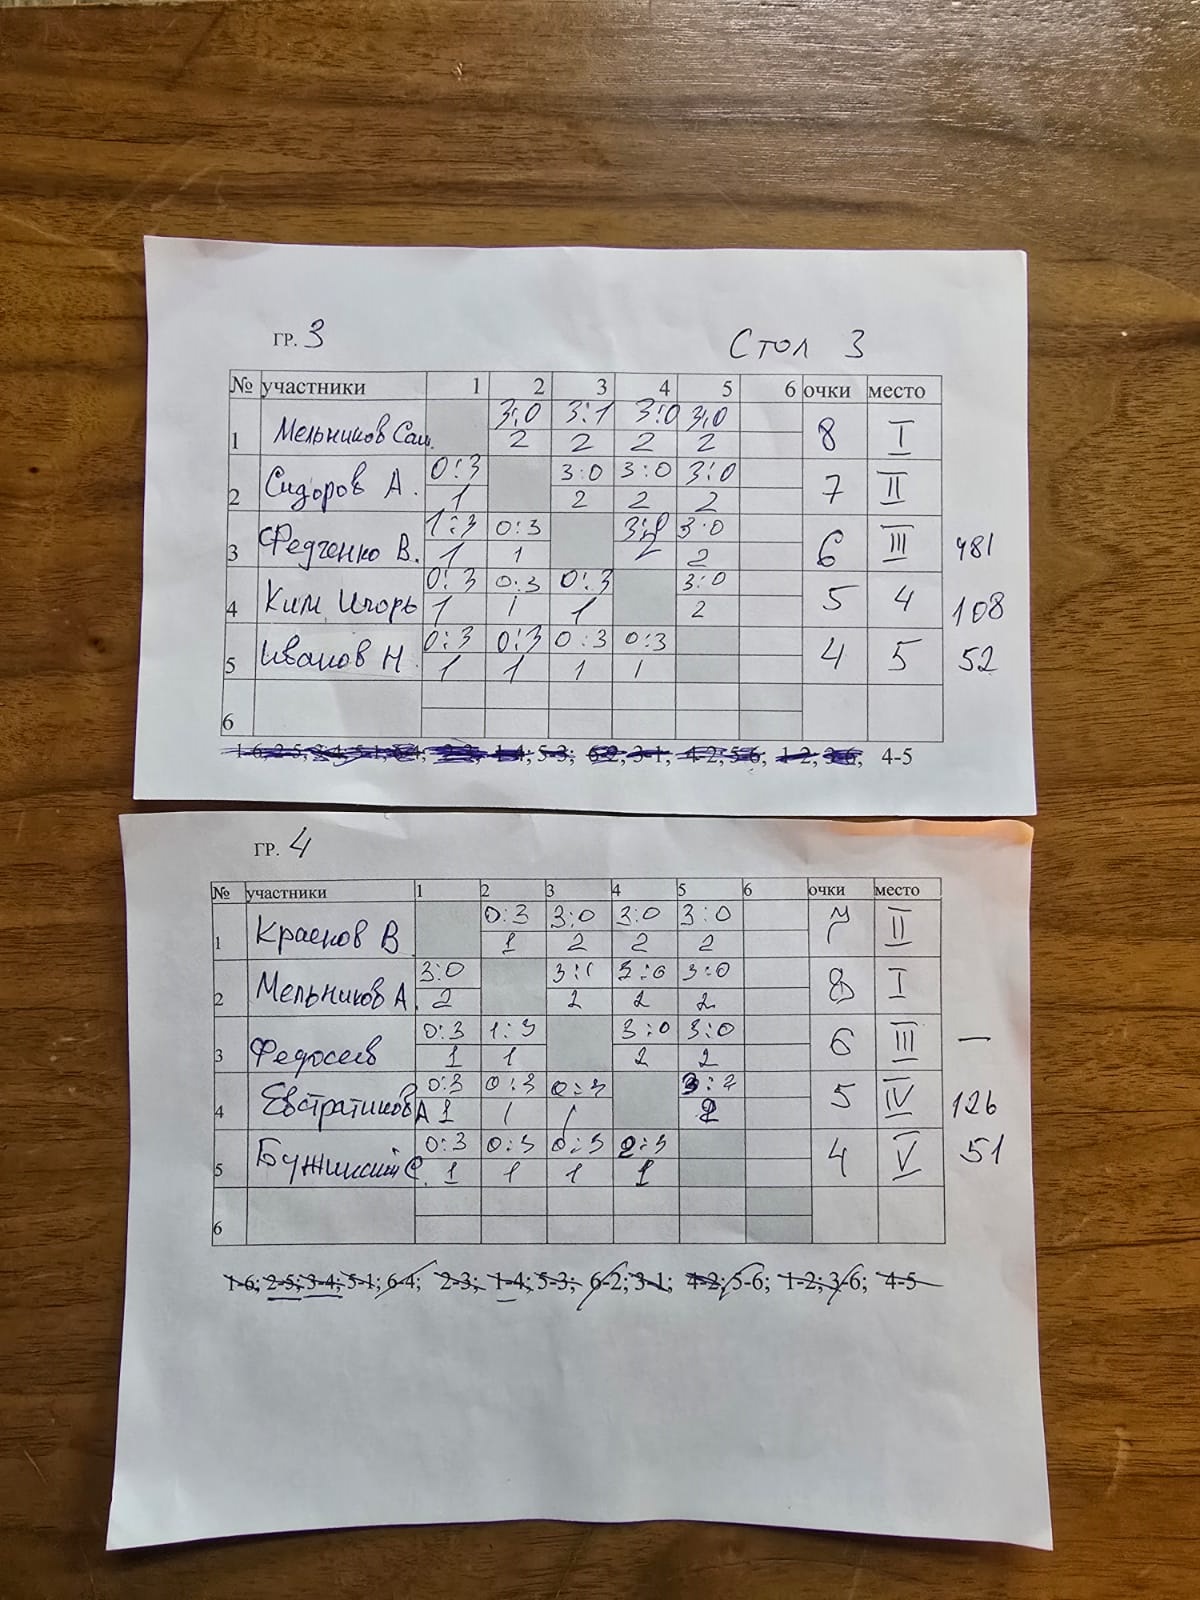 ГР. 3 Стол 3
№ участники 1 2 3 4 5 6 очки место
3:0 3:1 3:0 3:0
1 Мельников Саш. 2 2 2 2 8 I
0:3 3:0 3:0 3:0
2 Сидоров А. 1 2 2 2 7 II
1:3 0:3 3:0
3 Федченко В. 1 1 2 2 6 III 481
0:3 0:3 0:3 3:0
4 Ким Игорь 1 1 1 2 5 4 108
0:3 0:3 0:3 0:3
5 Иванов Н. 1 1 1 1 4 5 52
6
1-6; 2-5; 3-4; 5-1; 6-4; 2-3; 1-4; 5-3; 6-2; 3-1; 4-2; 5-6; 1-2; 3-6; 4-5
ГР. 4
№ участники 1 2 3 4 5 6 очки место
0:3 3:0 3:0 3:0
1 Краснов В 1 2 2 2 7 II
3:0 3:1 3:0 3:0
2 Мельников А 2 2 2 2 8 I
0:3 1:3 3:0 3:0
3 Федосеев 1 1 2 2 6 III —
0:3 0:3 0:3 3:2
4 Евстратиков А 1 1 1 2 5 IV 126
0:3 0:3 0:3 2:3
5 С. 1 1 1 1 4 V 51
6
1-6; 2-5; 3-4; 5-1; 6-4; 2-3; 1-4; 5-3; 6-2; 3-1; 4-2; 5-6; 1-2; 3-6; 4-5